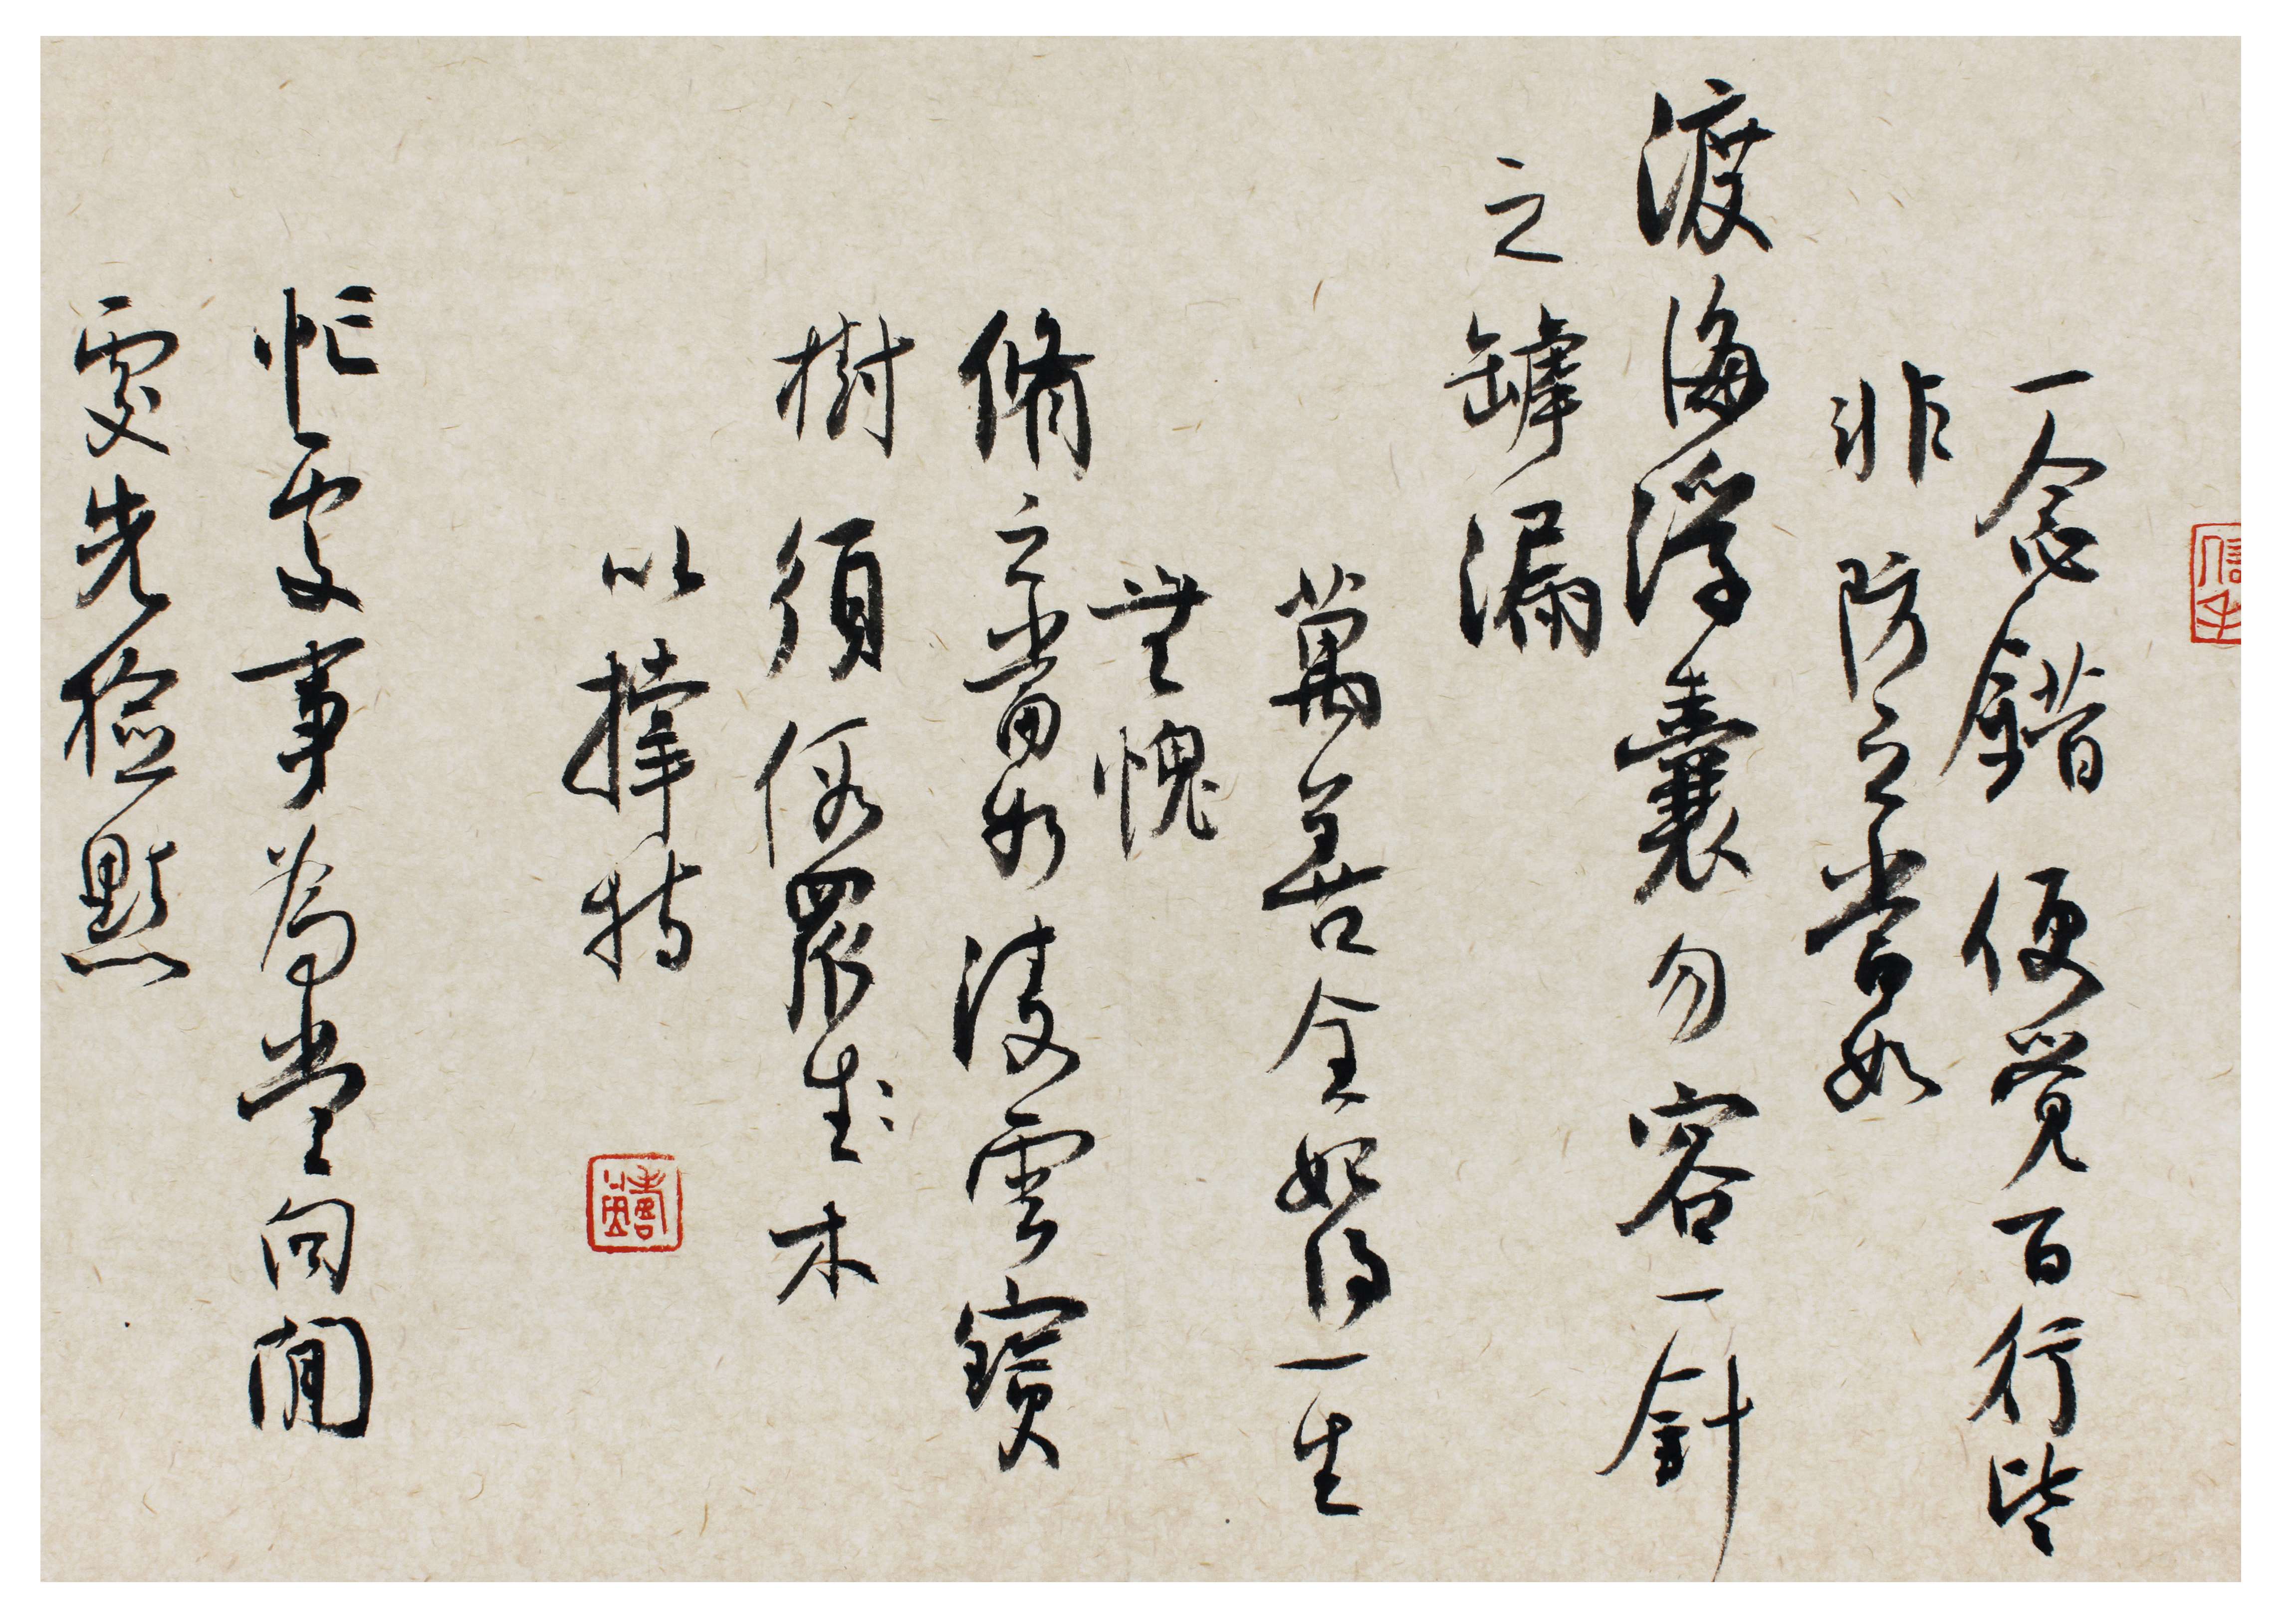 一念錯便覺百行皆
非防之當如
渡海浮囊勿容一針
之罅漏
萬善全始得一生
無愧
脩之當如凌雲寶
樹須假眾生木
以撐持
忙處事為當向閒
處先檢點